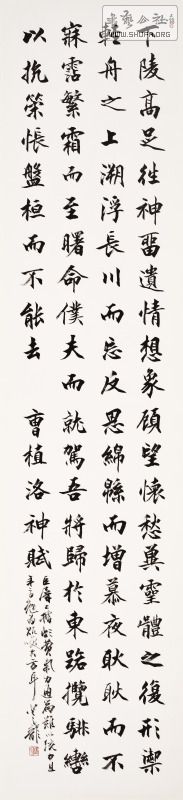 下陵高足往神畱遺情想象顧望懷愁冀靈體之復形禦
輕舟之上溯浮長川而忘反思綿緜而增慕夜耿耿而不
寐霑繁霜而至曙命僕夫而就駕吾將歸於東路攬騑轡
以抗策悵盤桓而不能去 曹植洛神賦
WWW.SHUFA.ORG